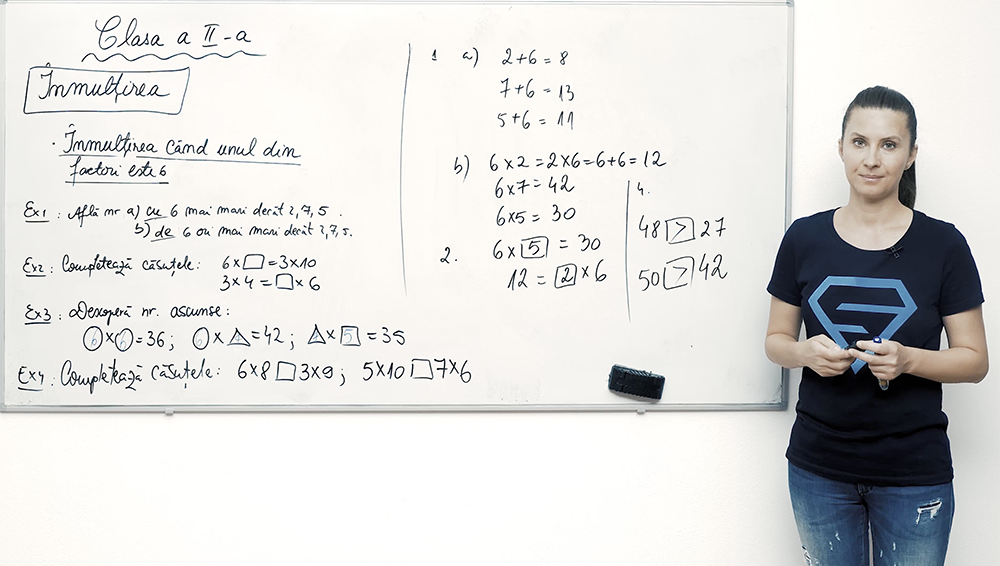 Clasa a II-a
Înmulțirea
· Înmulțirea când unul din
factori este 6
Ex1 : Află nr a) cu 6 mai mari decât 2, 7, 5 .
b) de 6 ori mai mari decât 2, 7, 5.
Ex2 : Completează căsuțele: 6 × □ = 3 × 10
3 × 4 = □ × 6
Ex3 : Descoperă nr. ascunse :
6 × 6 = 36 ; 6 × △ = 42 ; △ × 5 = 35
Ex4 : Completează căsuțele: 6 × 8 □ 3 × 9 ; 5 × 10 □ 7 × 6
1 a) 2 + 6 = 8
7 + 6 = 13
5 + 6 = 11
b) 6 × 2 = 2 × 6 = 6 + 6 = 12
6 × 7 = 42
6 × 5 = 30
2. 6 × 5 = 30
12 = 2 × 6
4.
48 > 27
50 > 42